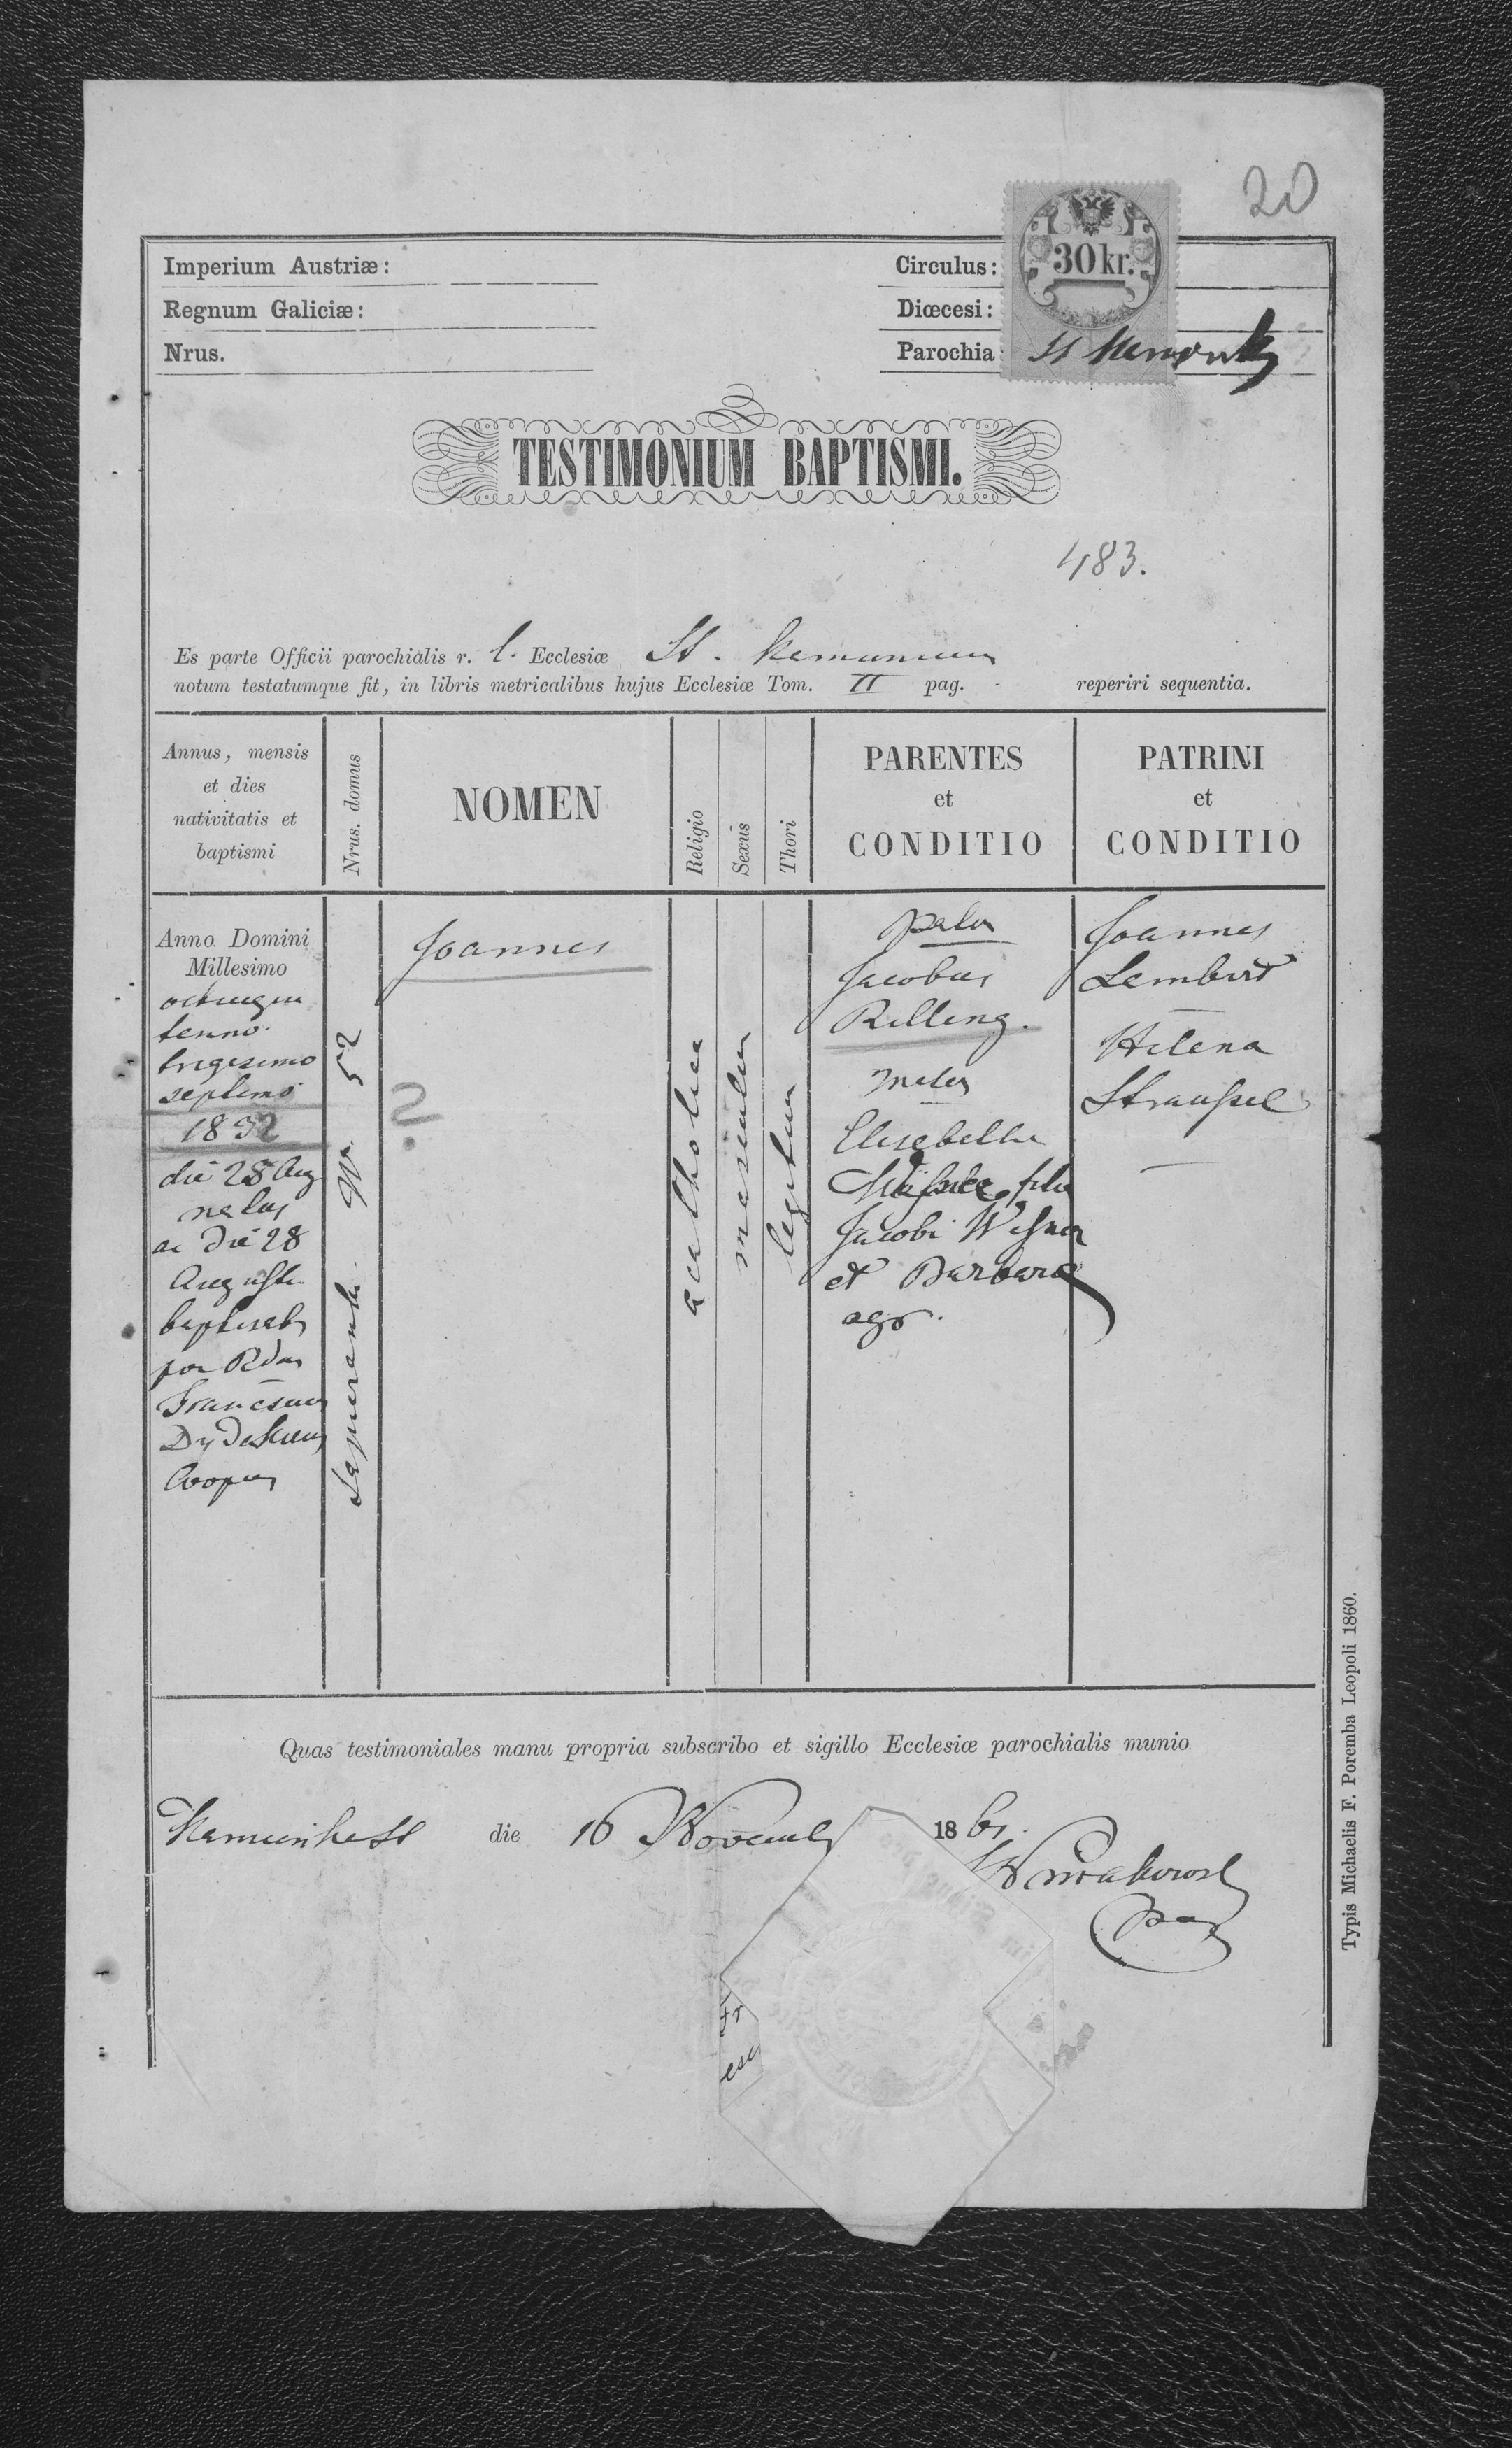 20
Imperium Austriæ:
Regnum Galiciæ:
Nrus.
Circulus:
Diœcesi:
Parochia
30 kr.
TESTIMONIUM BAPTISMI.
483.
Es parte Officii parochialis r. l. Ecclesiæ St.
notum testatumque fit, in libris metricalibus hujus Ecclesiæ Tom. II pag. - reperiri sequentia.
Annus, mensis
et dies
nativitatis et
baptismi
Nrus. domus
NOMEN
Religio
Sexus
Thori
PARENTES
et
CONDITIO
PATRINI
et
CONDITIO
Anno Domini
Millesimo
octingen
tesimo
trigesimo
septimo
die 28 Aug
natus
ac die 28
Augusti
baptisatus
per Rdum
Franciscum
Coopera
Separanda Nr. 52
Joannes
?
catholica
masculin
legitimi
pater
Jacobus
Rilling.
mater
Elisabetha
filia
Jacobi
et Barbara
agr.
Joannes
Lambert
Helena
Straussel
Quas testimoniales manu propria subscribo et sigillo Ecclesiæ parochialis munio
die 16 Novemb 1861.
Typis Michaelis F. Poremba Leopoli 1860.